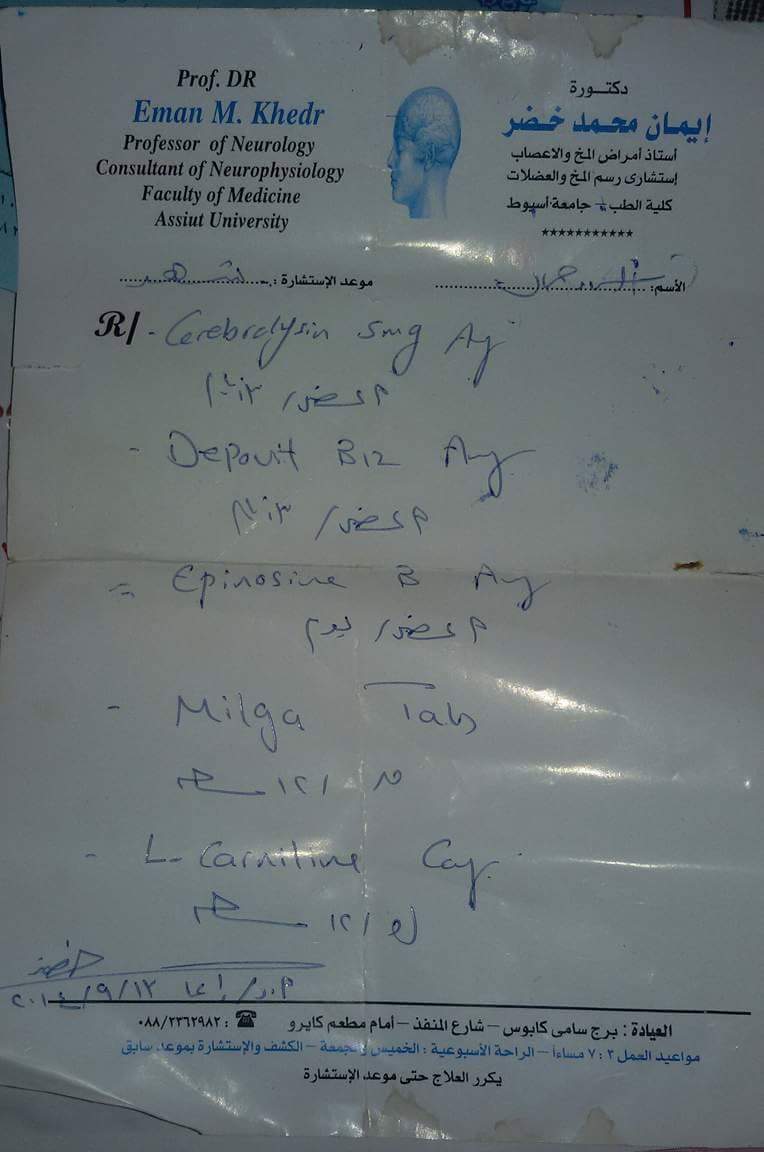 Prof. DR
Eman M. Khedr
Professor of Neurology
Consultant of Neurophysiology
Faculty of Medicine
Assiut University
دكتـــورة
إيمـان محمـد خضـر
أستاذ أمراض المخ والاعصاب
إستشارى رسم المخ والعضلات
كلية الطب - جامعة أسيوط
***********
الأسم:
موعد الإستشارة : شهر
R/ - Cerebrolysin 5mg Amp
عضل / ٣ أيام
- Depovit B12 Amp
عضل / ٣ أيام
= Epinosine B Amp
عضل / يوم
- Milga Tab
١٢ /
- L-Carnitine Cap.
١٢ /
٢٠١٤/٩/١٣
العيادة : برج سامى كابوس – شارع المنفذ – أمام مطعم كايرو ☎ : ٠٨٨/٢٣٦٢٩٨٢
مواعيد العمل ٢ : ٧ مساءاً – الراحة الأسبوعية : الخميس والجمعة – الكشف والإستشارة بموعد سابق
يكرر العلاج حتى موعد الإستشارة